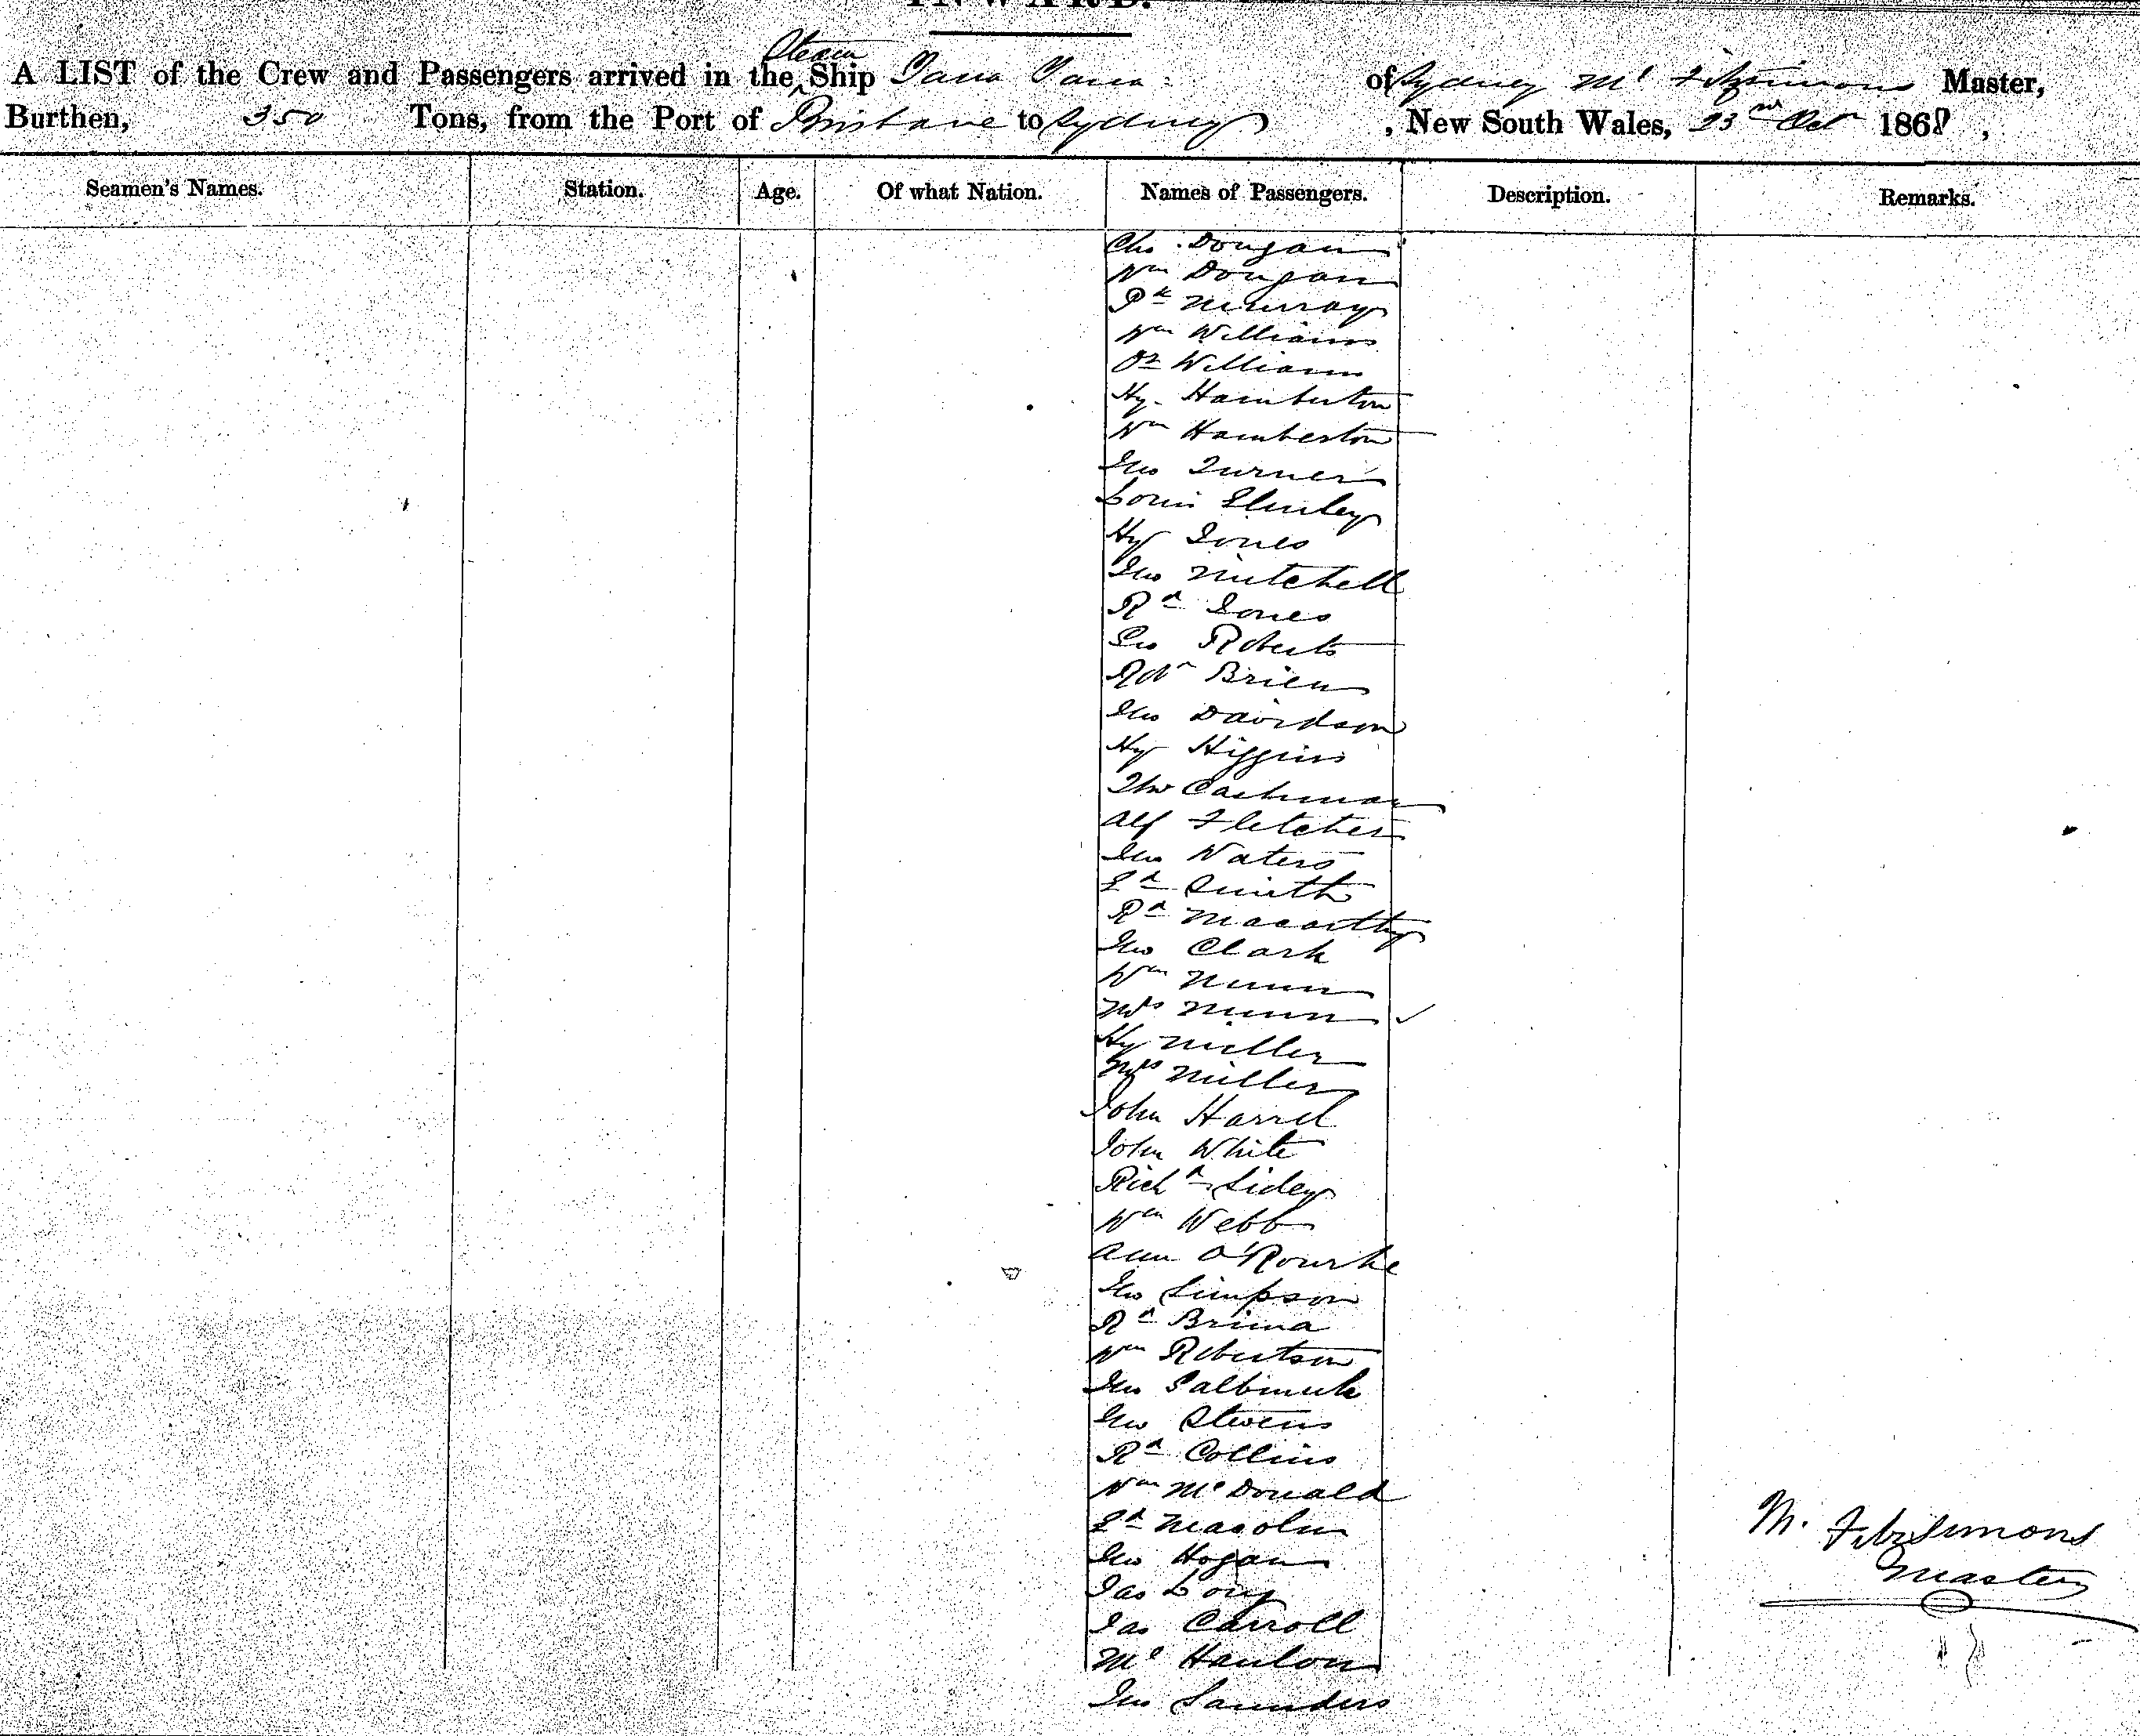 INWARD.
A LIST of the Crew and Passengers arrived in the Steam Ship Yarra Yarra of Sydney Ml Fitzsimons Master,
Burthen, 350 Tons, from the Port of Brisbane to Sydney, New South Wales, 23rd Octr 1868,
Seamen's Names. Station. Age. Of what Nation. Names of Passengers. Description. Remarks.
Chs. Dougan
Wm Dougan
Pk Murray
Wm Williams
Williams
Hy. Hamberton
Wm Hamberton
Jno Turner
Louis
Hy Jones
Jno Mitchell
Rd Jones
Geo Roberts
Robt Brien
Jno Davidson
Hy Higgins
Thos Cashman
Alf Fletcher
Jno Waters
Ed Smith
Rd Macarthy
Jno Clark
Wm Nunn
Mrs Nunn
Hy Miller
Mrs Miller
John Harrel
John White
Richd Sidey
Wm Webb
Ann O'Rourke
Jno Simpson
Rd
Wm Robertson
Jno
Geo Stevens
Rd Collins
Wm McDonald
Ed
Jno Hogan
Jas Long
Jas Carroll
Ml Hanlon
Jno Saunders
M. Fitzsimons
Master